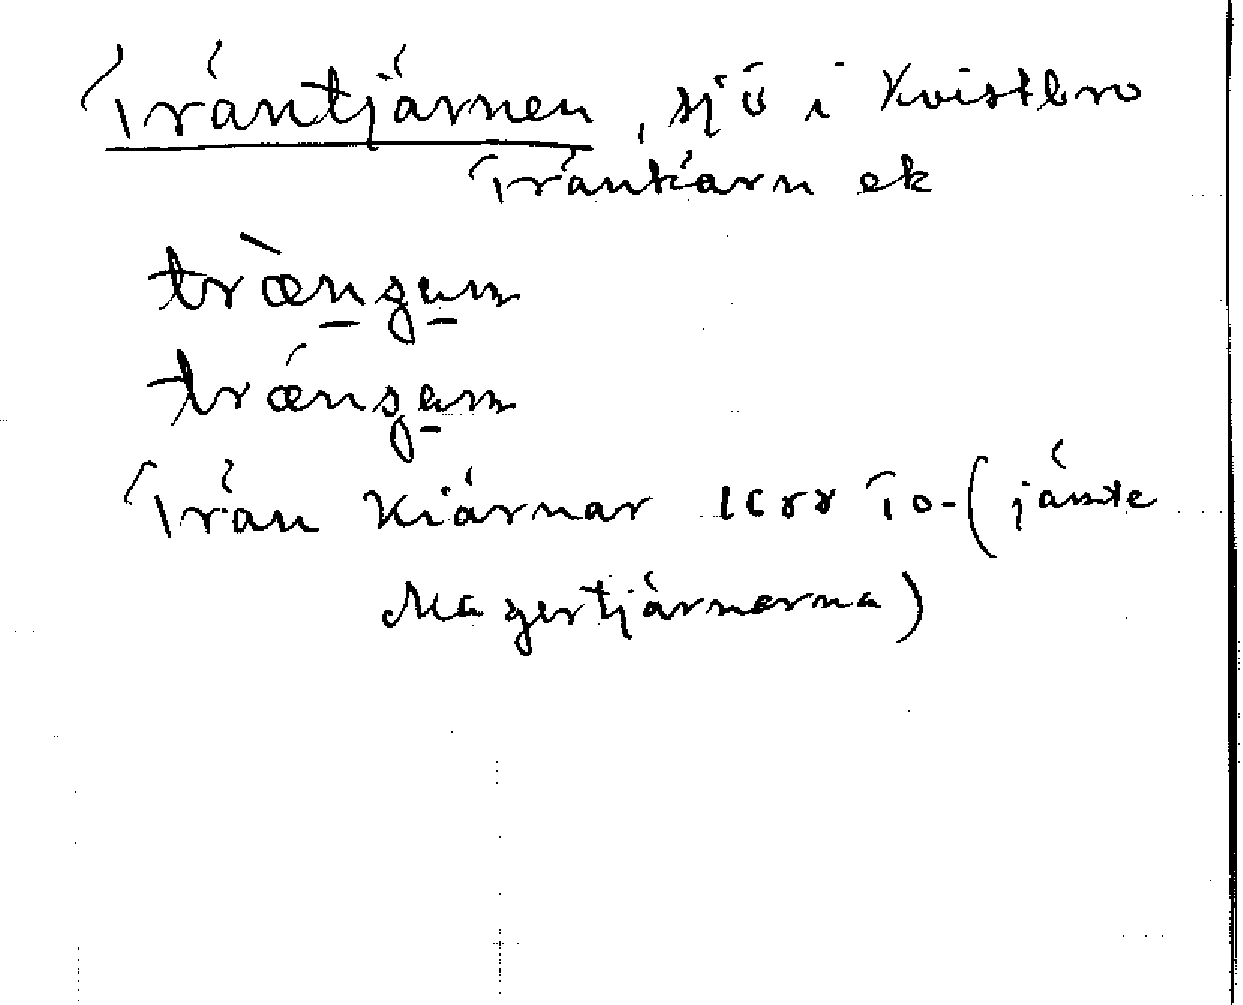 Trántjärnen, sjö i Kvistbro
Tránkiärn ek
træ̀ngum
trǽngum
Trán kiärnar 1688 To- (jämte
Magertjärnarna)